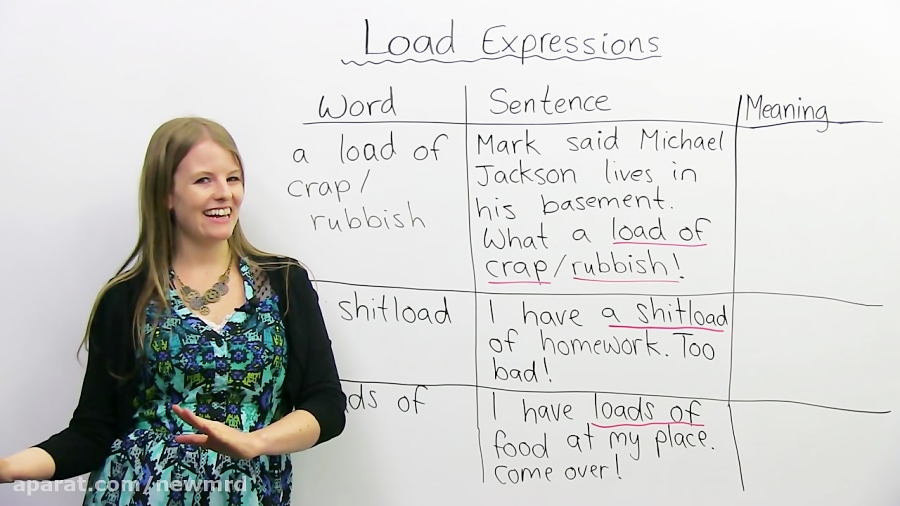 Load Expressions
Word
Sentence
Meaning
a load of
crap/
rubbish
Mark said Michael
Jackson lives in
his basement.
What a load of
crap/rubbish!
shitload
I have a shitload
of homework. Too
bad!
of
I have loads of
food at my place.
Come over!
aparat.com/newmrd